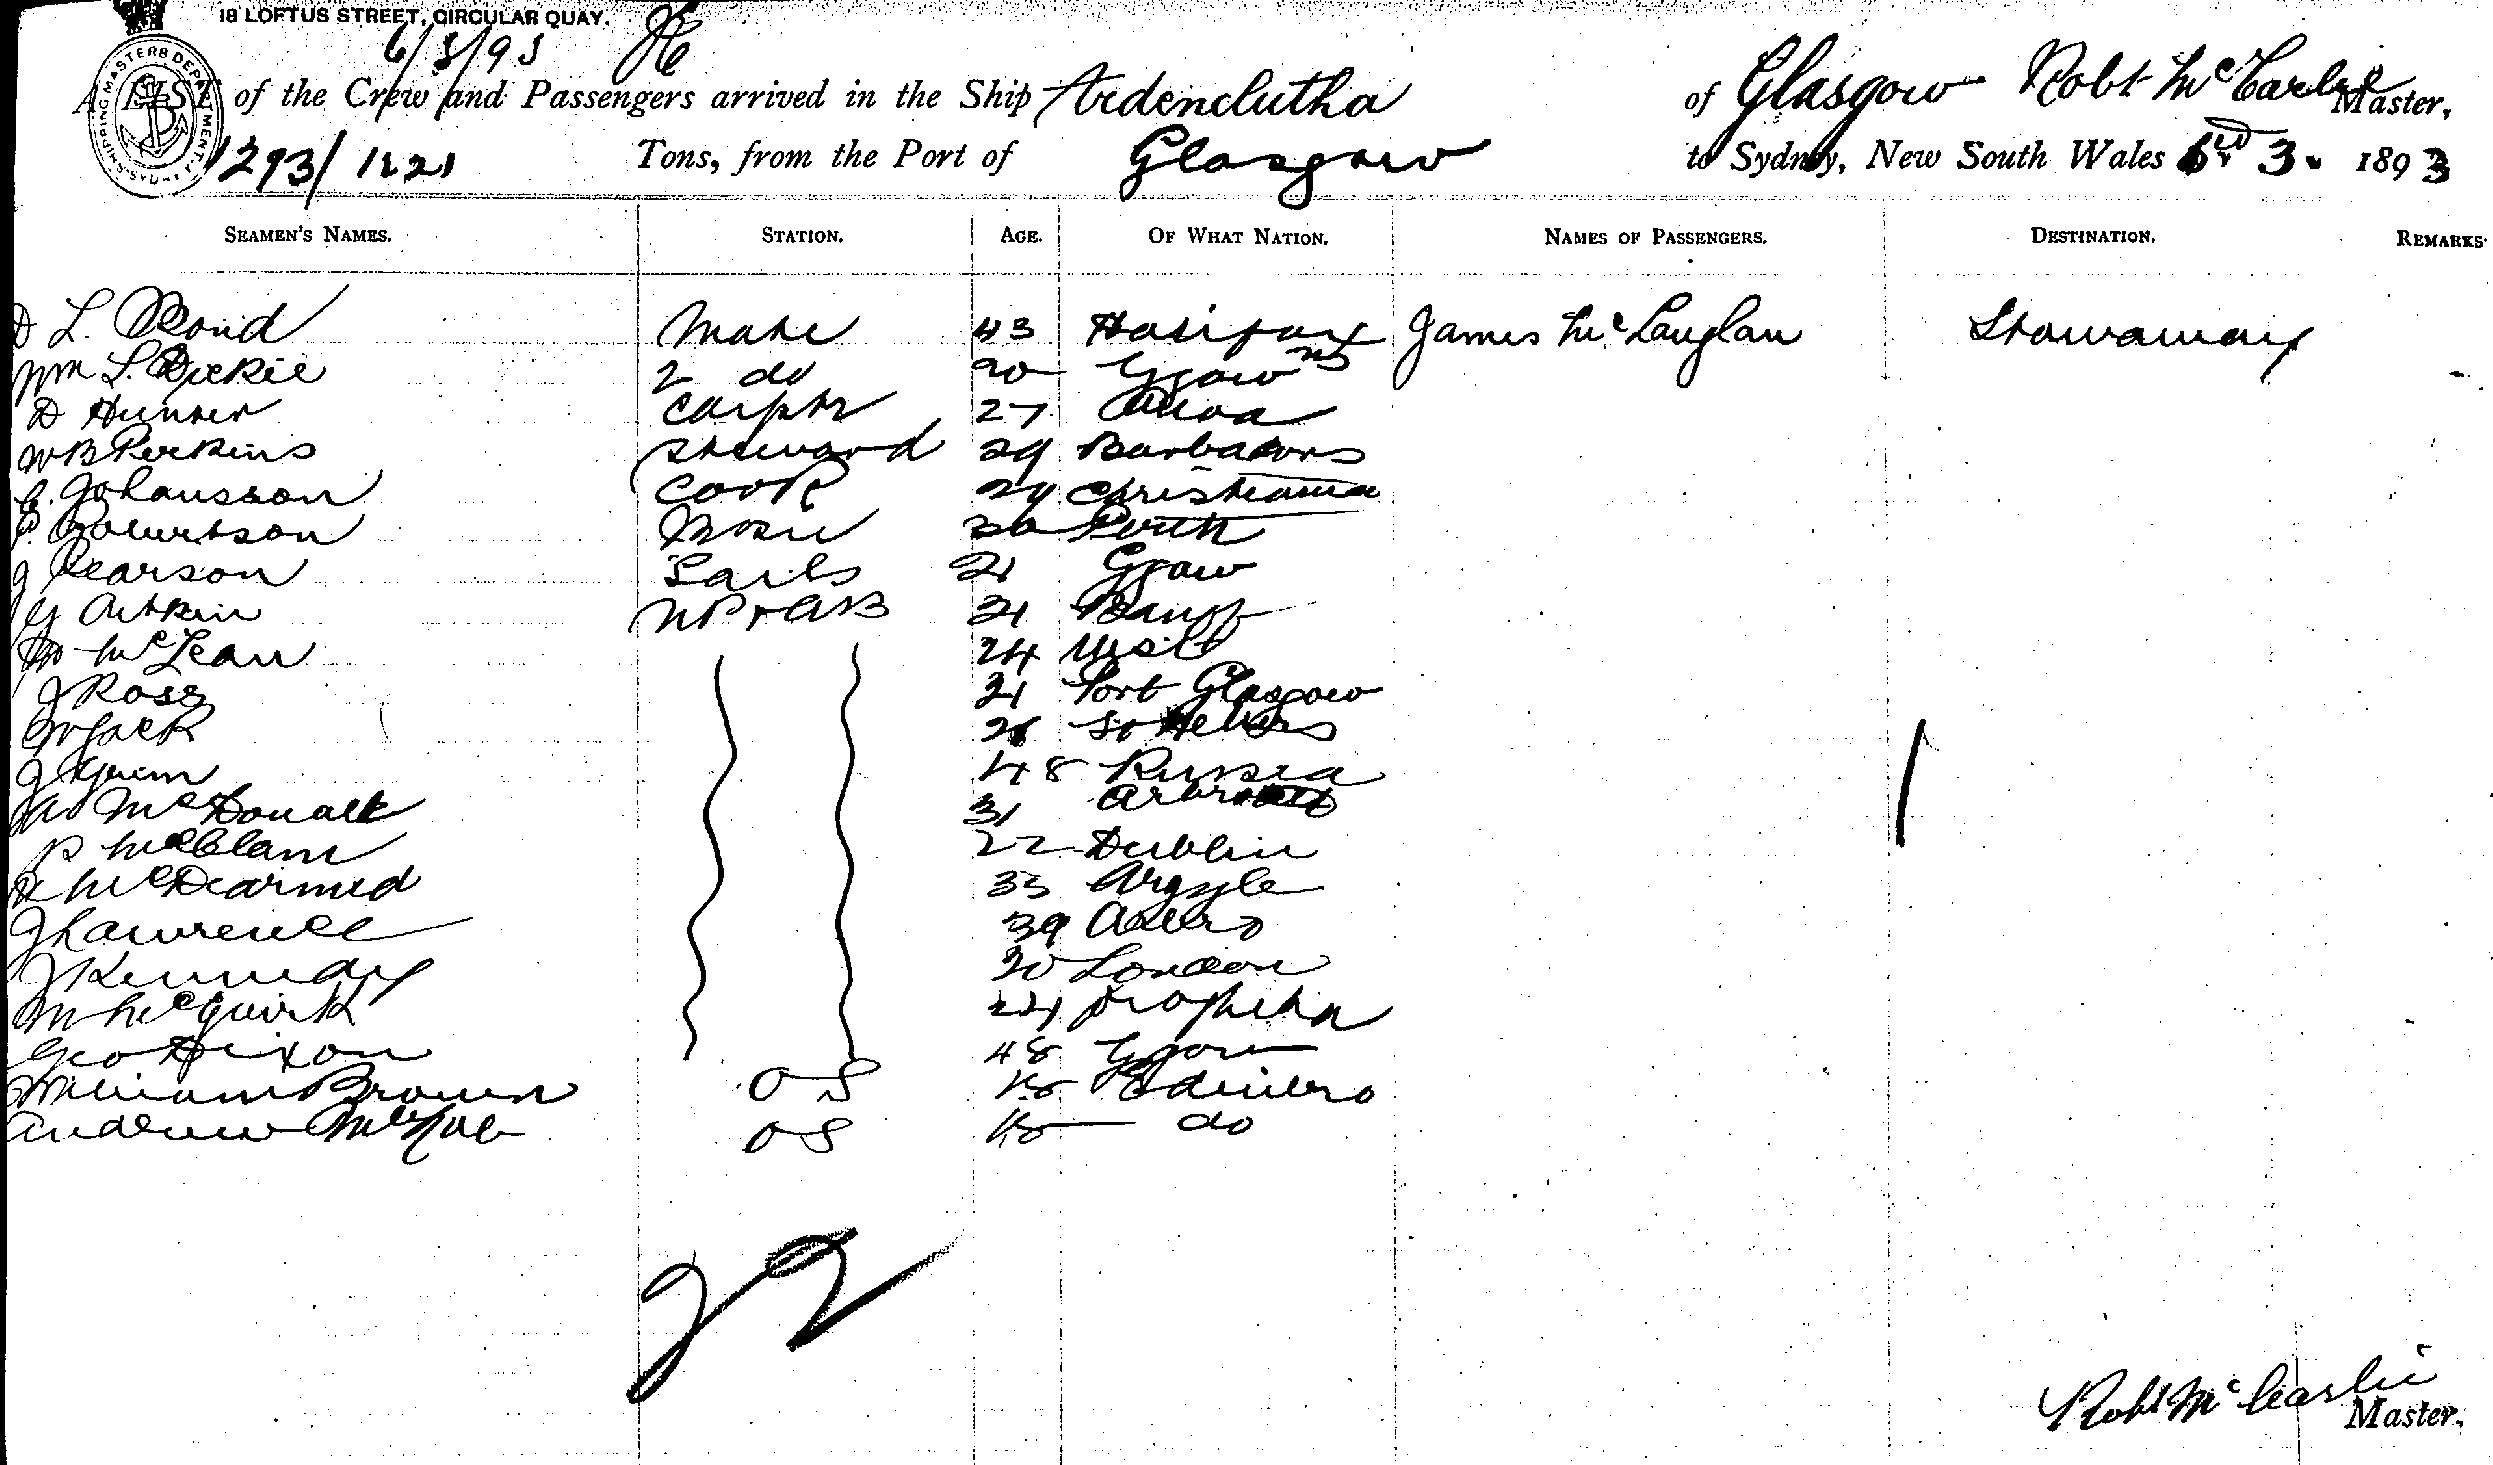 18 LOFTUS STREET, CIRCULAR QUAY.
6/3/93
SHIPPING MASTERS DEPARTMENT
A LIST of the Crew and Passengers arrived in the Ship Ardenclutha of Glasgow Robt McCarlie Master,
1293/1221 Tons, from the Port of Glasgow to Sydney, New South Wales 3. 1893
SEAMEN'S NAMES. STATION. AGE. OF WHAT NATION. NAMES OF PASSENGERS. DESTINATION. REMARKS
D L. Bond Mate 43 Halifax NS James McLauglan Stowaway
Wm L. Dickie 2 do 20 Ggow
D Hunter Carptr 27 Alloa
W B Perkins Steward 29 Barbadoes
C. Johansson Cook 29 Christiania
P. Robertson Bosn 30 Perth
J Pearson Sails 21 Ggow
G Aitkin AB 31 Banff
McLean 24 Uist
J Ross 31 Port Glasgow
W Jack 26 St Helens
J Grim 48 Russia
McDonald 31 Arbroath
P McClam 22 Dublin
McDearmed 33 Argyle
J Lawrence 39
J Kennedy 20 London
M McQuirk 24 Drogheda
Geo Dixon 48 Ggow
William Brown O S 18 Edinbro
Andrew McNab O S 18 do
Robt McCarlie
Master.